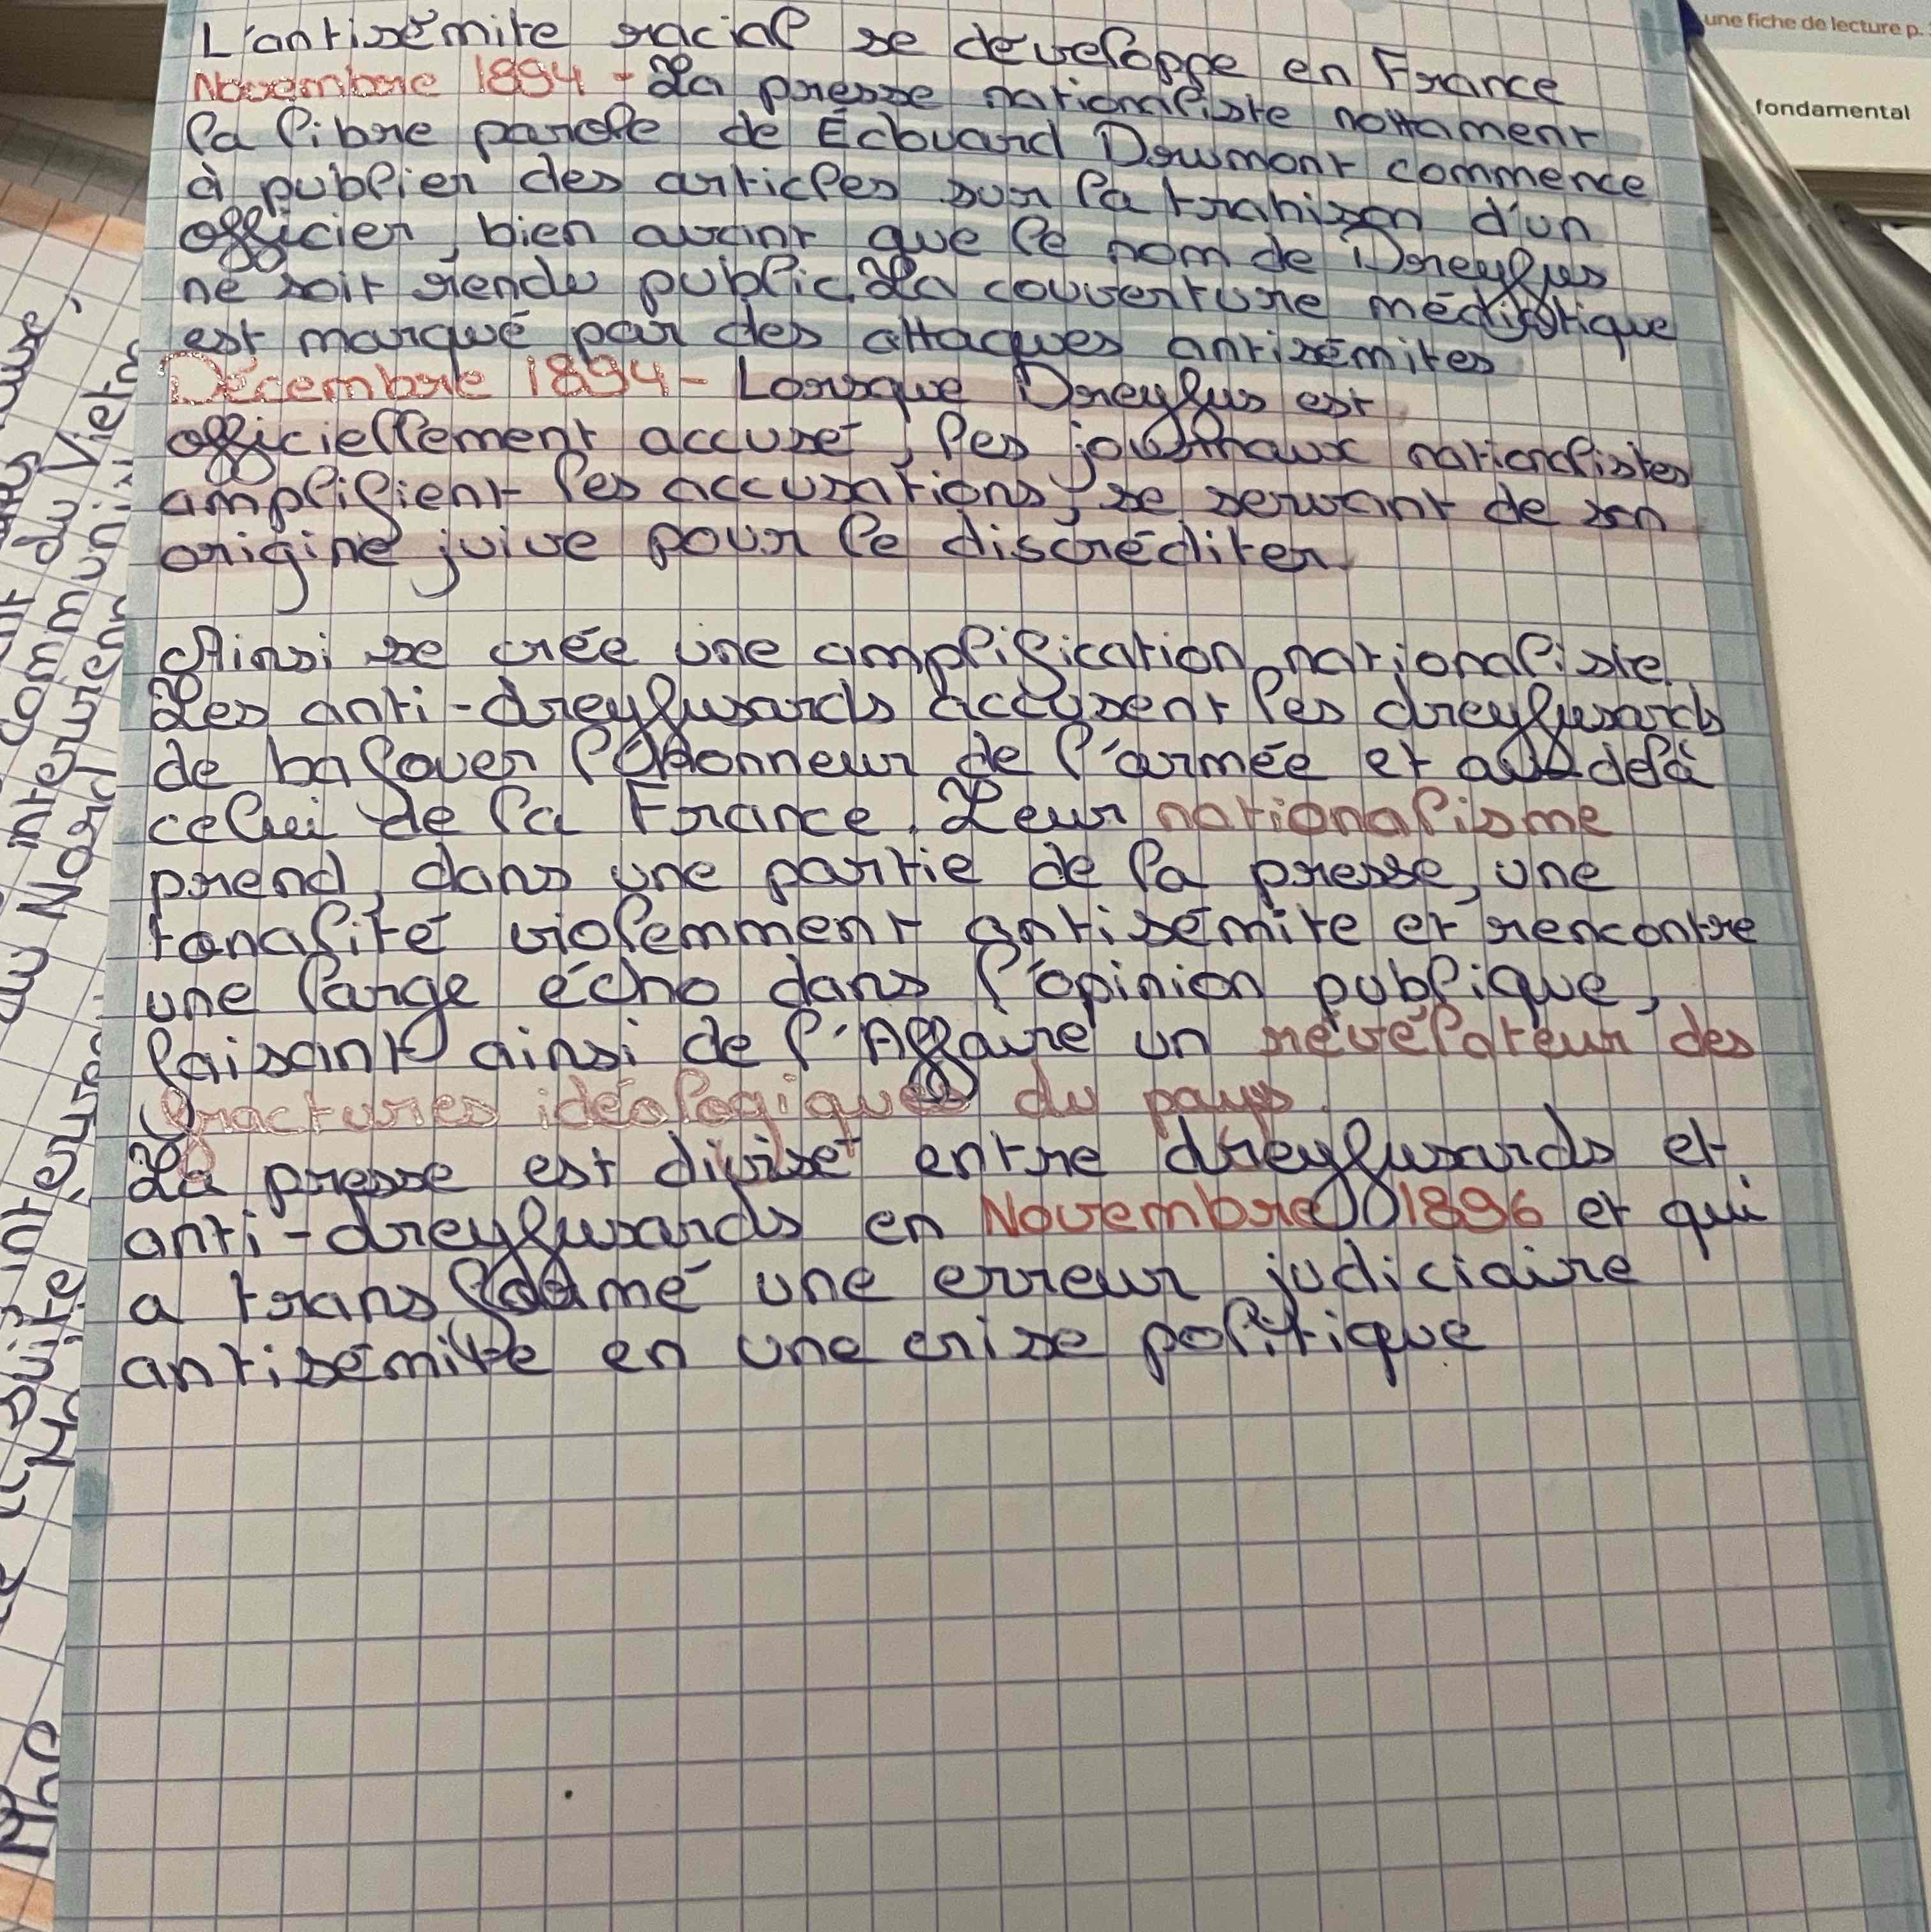 L'antisémite racial se développe en France
Novembre 1894 - La presse nationaliste nottament
la libre parole de Édouard Drumont commence
à publier des articles sur la trahison d'un
officier, bien avant que le nom de Dreyfus
ne soit rendu public. La couverture médiatique
est marqué par des attaques antisémites
Décembre 1894 - Lorsque Dreyfus est
officiellement accusé, les journaux nationalistes
amplifient les accusations, se servant de son
origine juive pour le discréditer
Ainsi se crée une amplification nationaliste.
Les anti-dreyfusards accusent les dreyfusards
de bafouer l'honneur de l'armée et au delà
celui de la France. Leur nationalisme
prend, dans une partie de la presse, une
tonalité violemment antisémite et rencontre
une large écho dans l'opinion publique,
faisant ainsi de l'Affaire un révélateur des
fractures idéologiques du pays.
La presse est divisé entre dreyfusards et
anti-dreyfusards en Novembre 1896 et qui
a transformé une erreur judiciaire
antisémite en une crise politique
une fiche de lecture p.
fondamental
du Vietn
interviewen
au Nord
suite